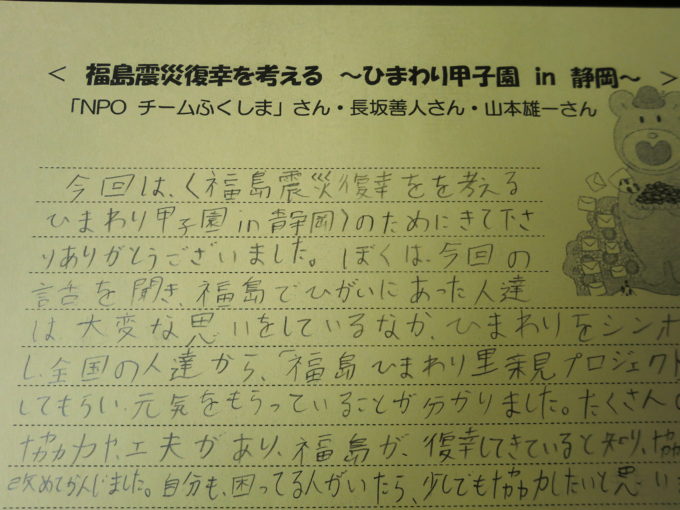 ＜ 福島震災復幸を考える ～ひまわり甲子園 in 静岡～ ＞
「NPO チームふくしま」さん・長坂善人さん・山本雄一さん
今回は、〈福島震災復幸をを考える
ひまわり甲子園in静岡〉のためにきて下さ
りありがとうございました。ぼくは、今回の
話を聞き、福島でひがいにあった人達
は、大変な思いをしているなか、ひまわりをシンボ
し、全国の人達から、「福島ひまわり里親プロジェクト
してもらい、元気をもらっていることが分かりました。たくさん
協力や、工夫があり、福島が、復幸してきていると知り、協
改めてかんじました。自分も、困ってる人がいたら、少しでも協力したいと思い